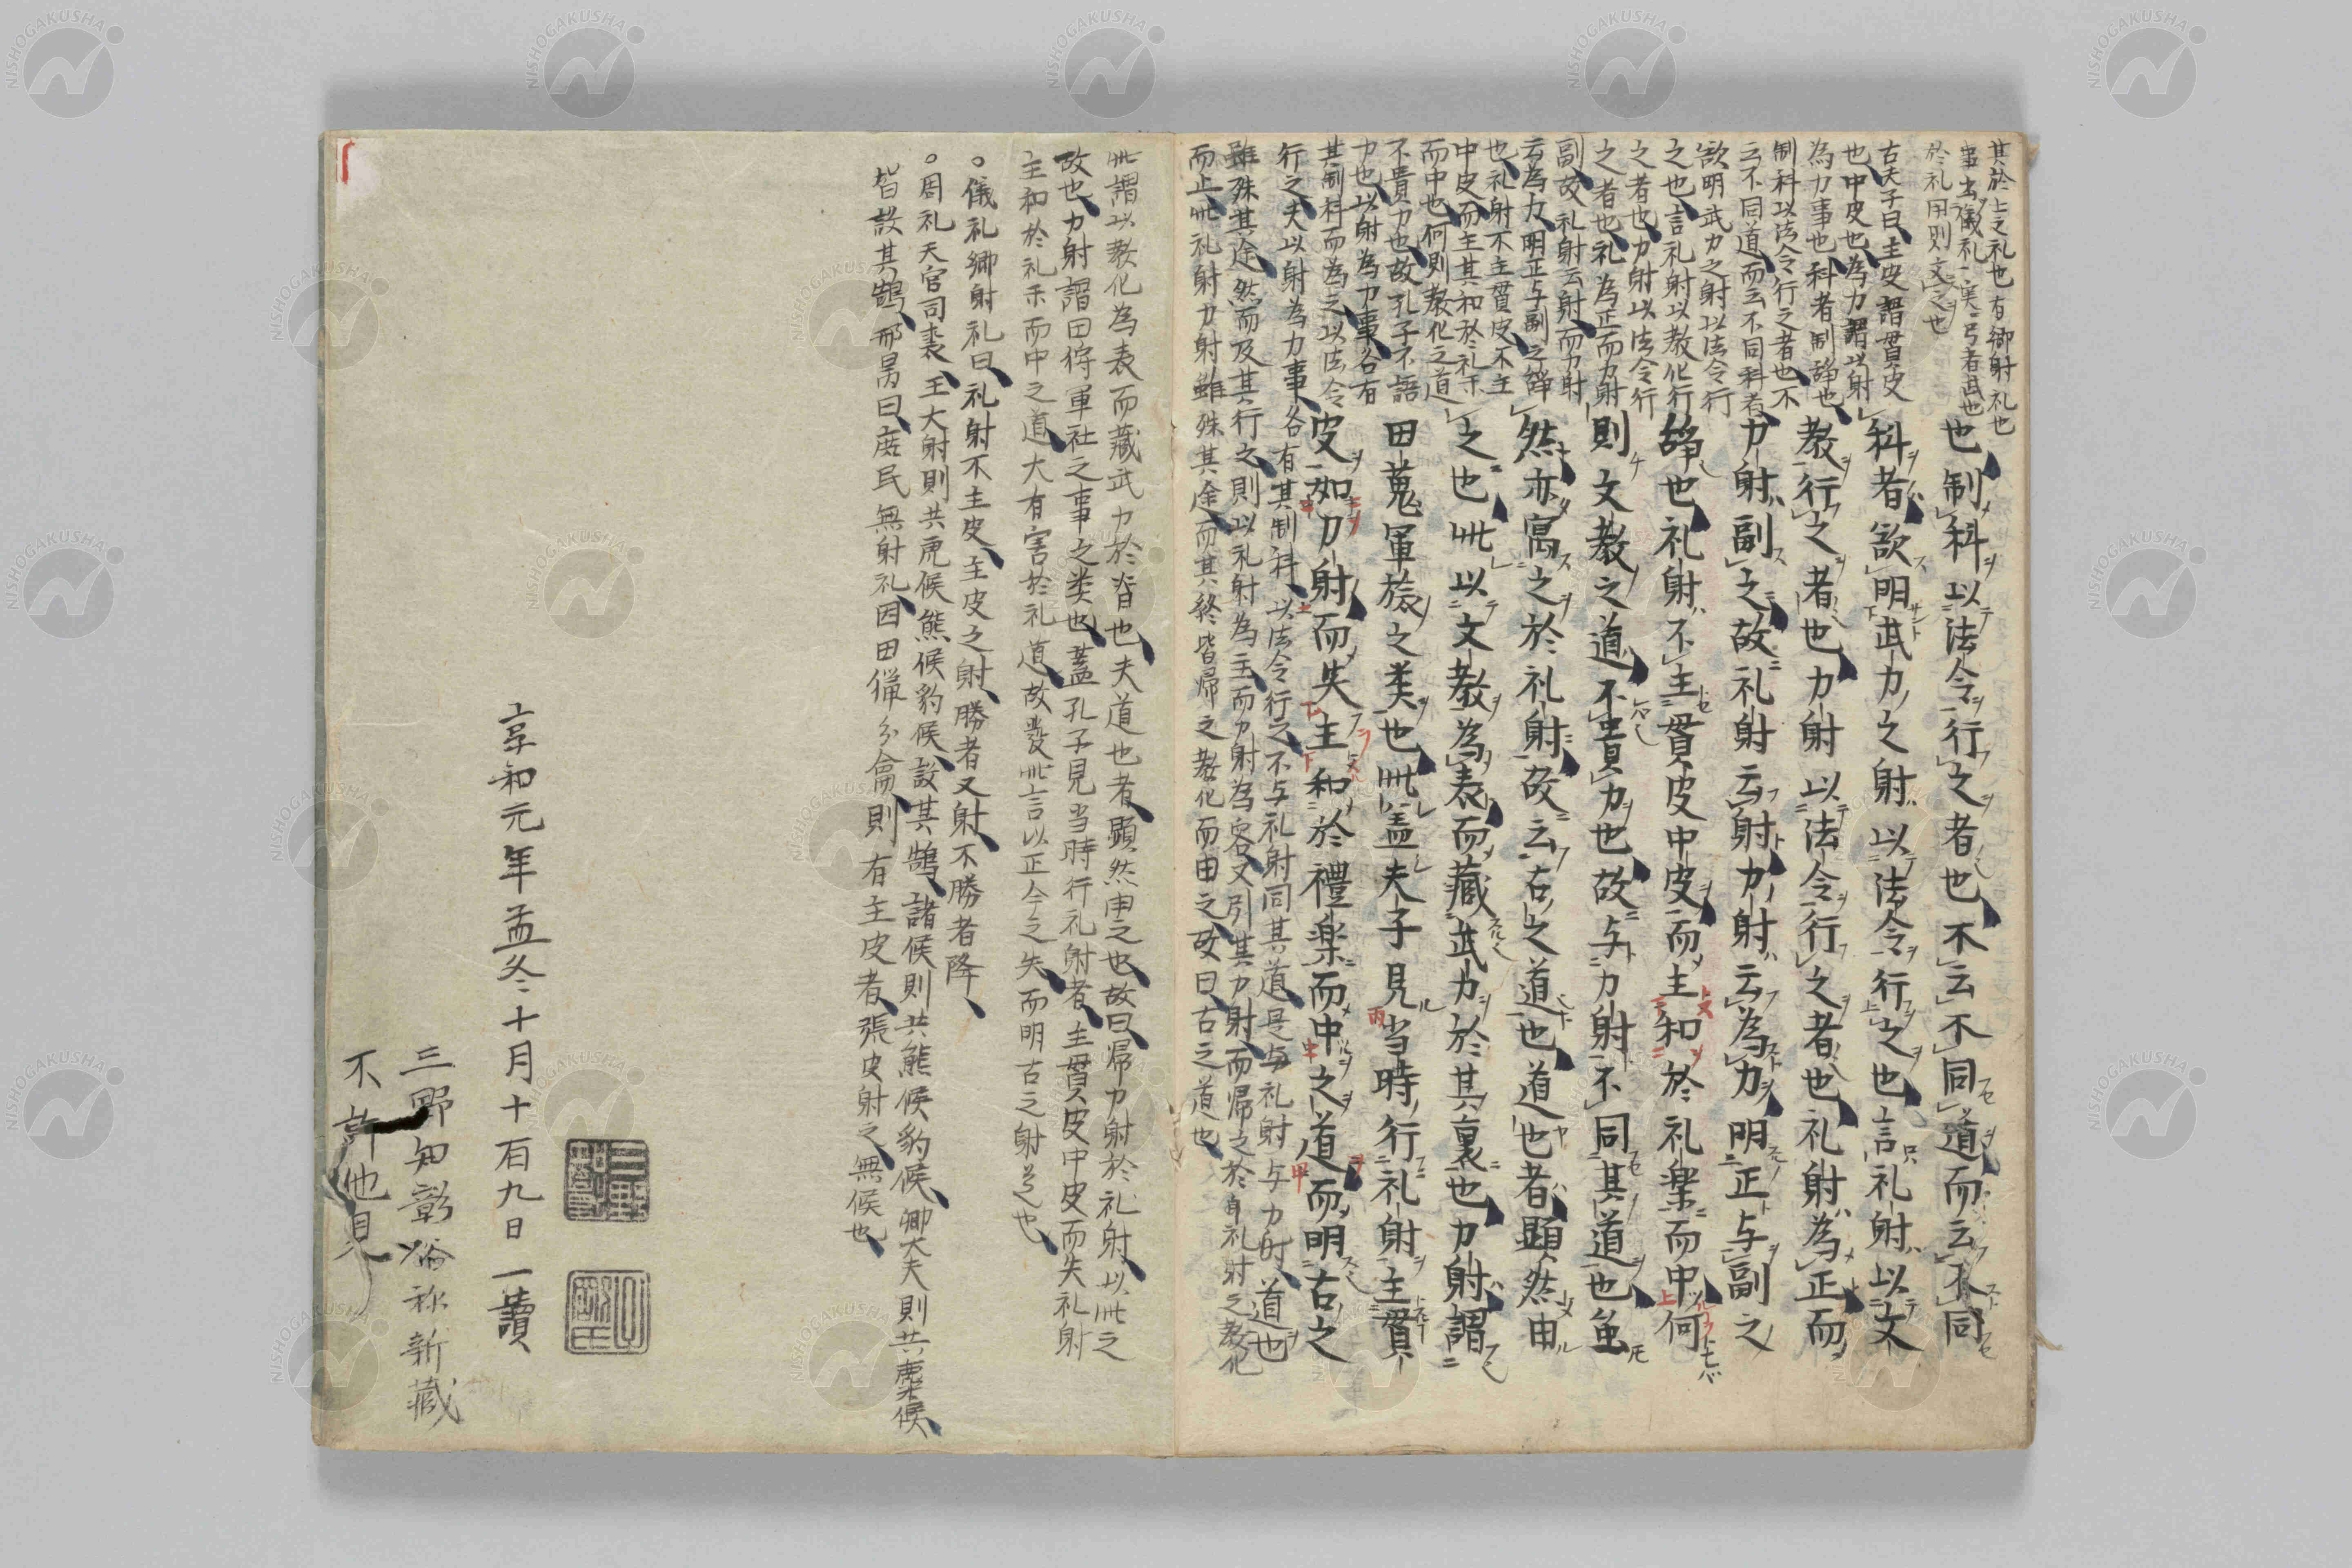 其於上之礼也有郷射礼也
事出儀礼一実弓者武也
於礼用則文之也
古夫子曰主皮謂貫皮
也中皮也為力謂以射
為力事也科者制諍也
制科以法令行之者也不
云不同道而云不同科者
欲明武力之射以法令行
之也言礼射以教化行
之者也力射以法令行
之者也礼為正而力射
副故礼射云射而力射
云為力明正与副之諍
也礼射不主貫皮不主
中皮而主其和於礼示
而中也何則教化之道
不貴力也故孔子不語
力也以射為力事各有
其制科而為之以法令
行之夫以射為力事各有其制科以法令行之不与礼射同其道是与礼射与力射道也
雖殊其途然而及其行之則以礼射為主而力射為容又引其力射而帰之於自礼射之教化
而止此礼射力射雖殊其途而其終皆帰之教化而由之故曰古之道也
也制科以法令行之者也不云不同道而云不同
科者欲明武力之射以法令行之也言礼射以文
教行之者也力射以法令行之者也礼射為正而
力射副之故礼射云射力射云為力明正与副之
諍也礼射不主貫皮中皮而主和於礼楽而中何
則文教之道不貴力也故与力射不同其道也虽
然亦寓之於礼射故云古之道也道也者顕然由
之也此以文教為表而蔵武力於其裏也力射謂
田蒐軍旅之类也此盖夫子見当時行礼射主貫
皮如力射而失主和於禮楽而中之道而明古之
此謂以教化為表而藏武力於背也夫道也者顕然由之也故曰帰力射於礼射以此之
故也力射謂田狩軍社之事之类也蓋孔子見当時行礼射者主貫皮中皮而失礼射
主和於礼示而中之道大有害於礼道故發此言以正今之失而明古之射道也
。儀礼郷射礼曰礼射不主皮主皮之射勝者又射不勝者降
。周礼天官司裘王大射則共虎侯熊侯豹侯設其鵠諸侯則共熊侯豹侯卿大夫則共麋侯
皆設其鵠邢昺曰庶民無射礼因田猟分禽則有主皮者張皮射之無侯也
享和元年孟冬十月十有九日一讀
三野知彰俗称新蔵
不許他見